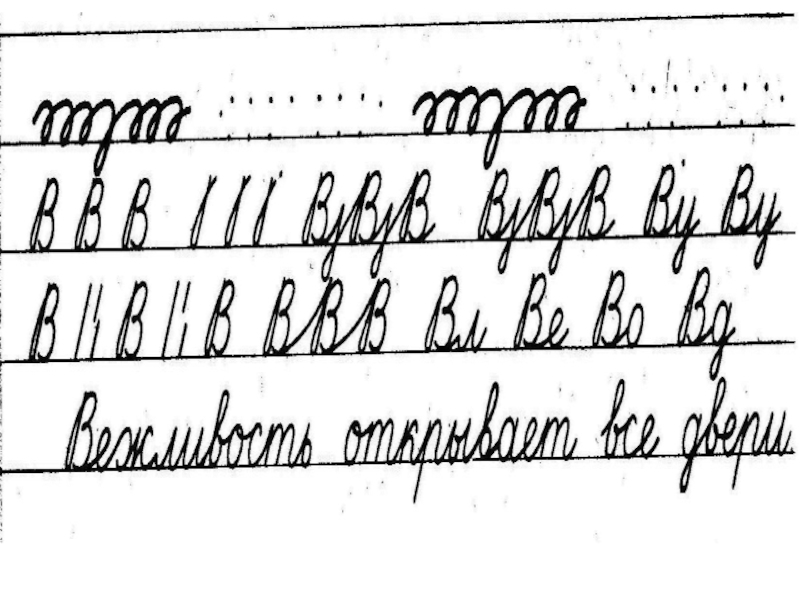 В В В В В В В В В Ву Ву
В В В В В В Вл Ве Во Вд
Вежливость открывает все двери